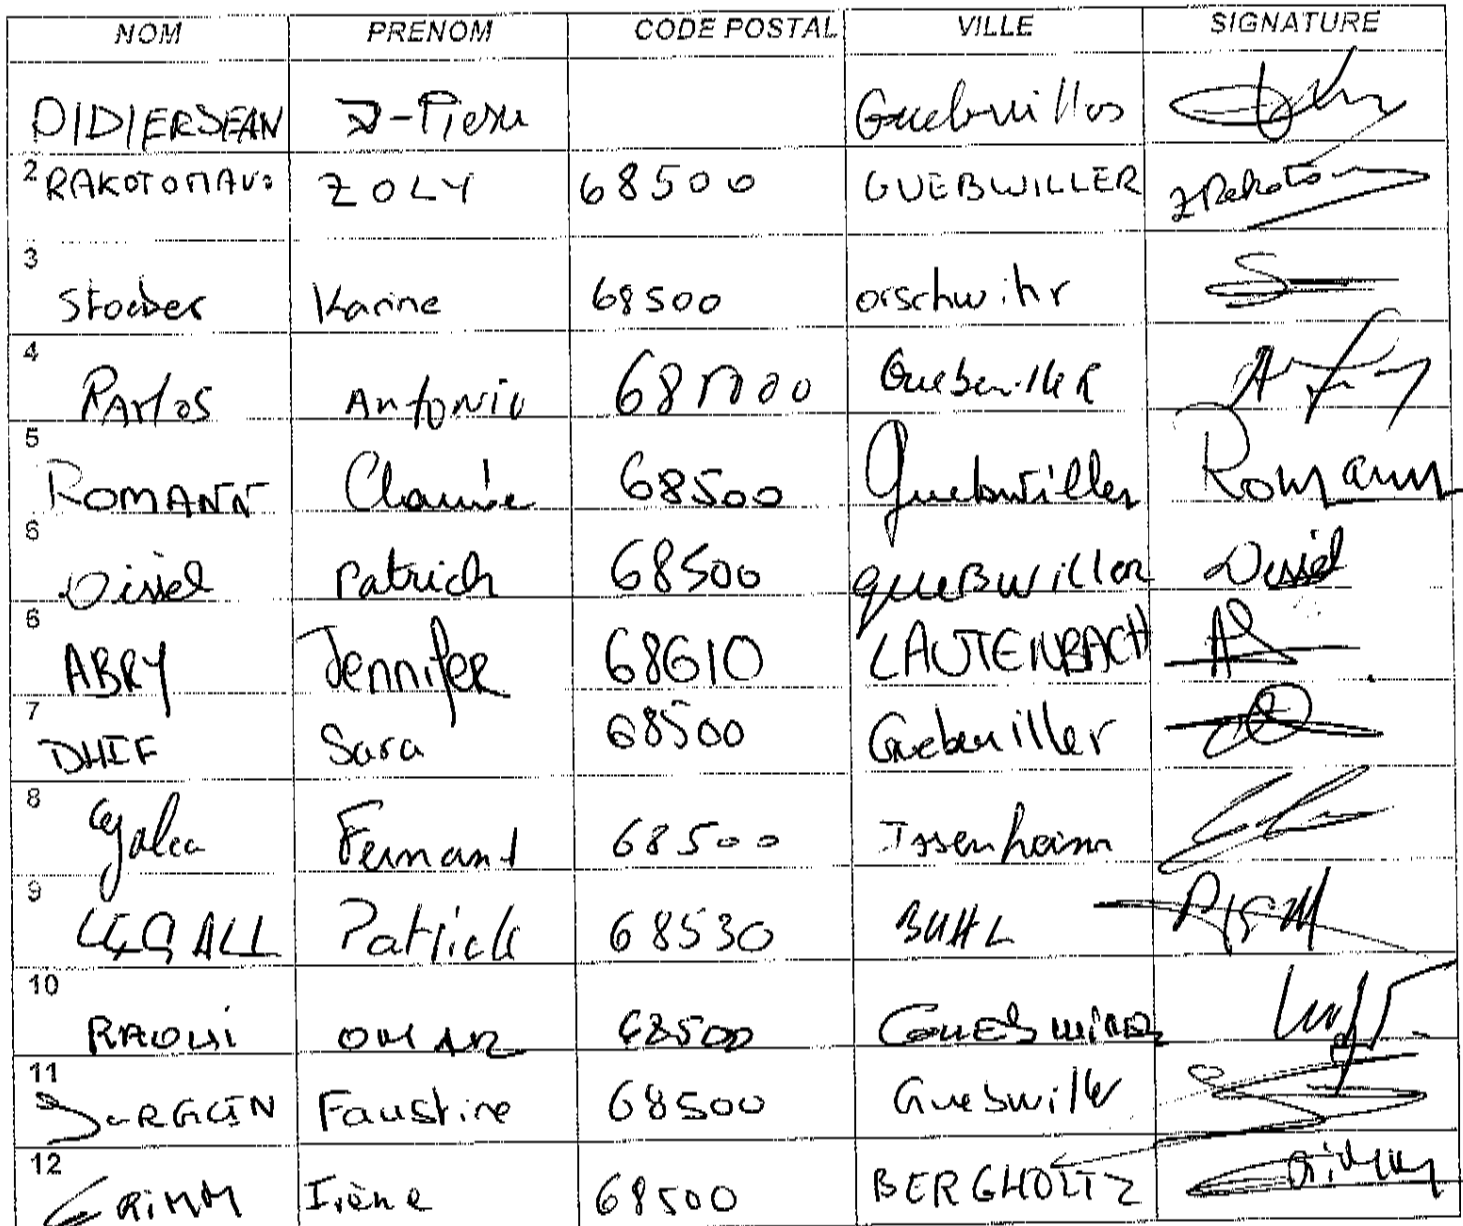 NOM PRENOM CODE POSTAL VILLE SIGNATURE
DIDIERJEAN J-Pierre
2 RAKOTOMAVO ZOLY 68500 GUEBWILLER
3 Stoeber Karine 68500 orschwihr
4 Antonio Guebwiller
5 ROMANN Claude 68500 Guebwiller Romann
6 Dissel Patrick 68500 gueBwiller Dissel
6 ABRY Jennifer 68610 LAUTENBACH
7 DHIF Sara 68500 Guebwiller
8 Fernand 68500 Issenheim
9 LEGALL Patrick 68530 BUHL
10 RAOUI OMAR 68500
11 Faustine 68500 Guebwiller
12 GRIMM Irène 68500 BERGHOLTZ Grimm